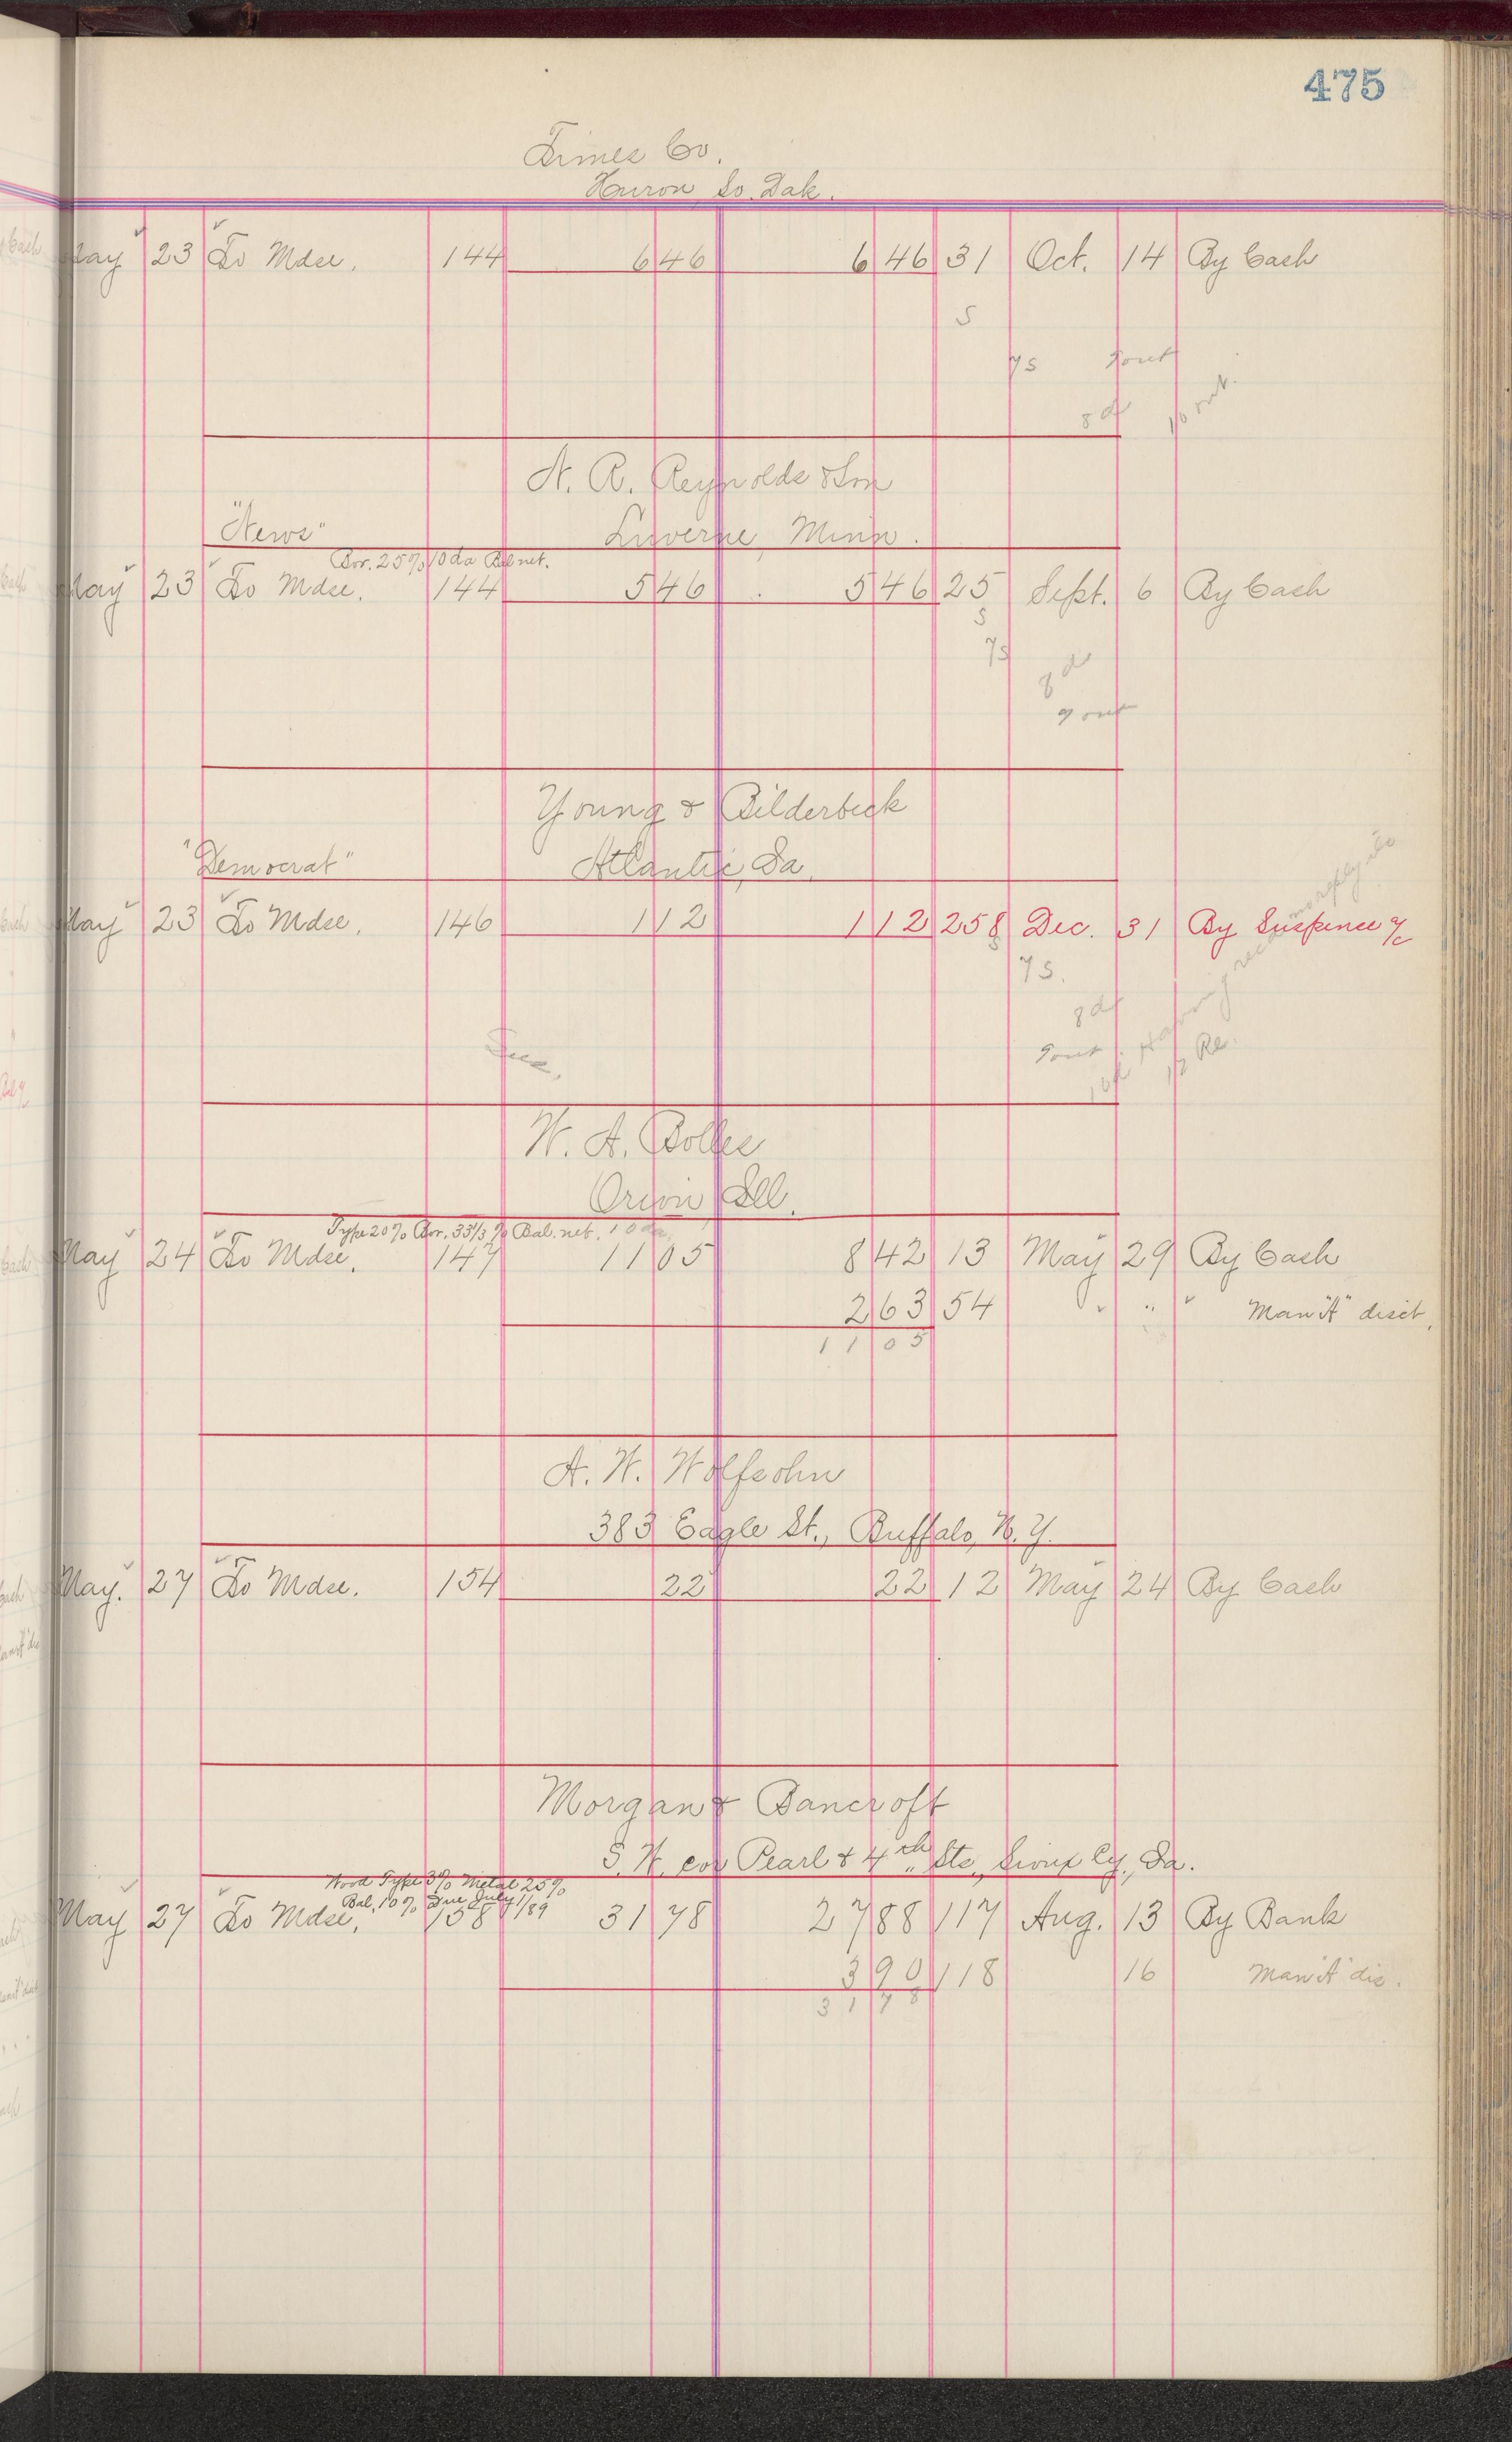 475
Times Co.
Huron So. Dak.
May 23 To Mdse. 144 6 46 6 46 31 Oct. 14 By Cash
5
7s 9 out
8 d 10 out.
A. R. Reynolds & Son
"News" Luverne, Minn.
Bor. 25% 10 da Bal net.
May 23 To Mdse. 144 5 46 5 46 25 Sept. 6 By Cash
5
7s
8 d
9 out
Young & Bilderbeck
"Democrat" Atlantic, Ia.
May 23 To Mdse. 146 1 12 1 12 258 Dec. 31 By Suspence a/c
7s.
8 d
9 out
12 Re.
W. A. Bolles
Orion Ill.
Type 20% Bor. 33 1/3 % Bal. net. 10 da.
May 24 To Mdse. 147 11 05 8 42 13 May 29 By Cash
2 63 54 " " " Man "A" disct.
11 05
A. W. Wolfsohn
383 Eagle St., Buffalo, N. Y.
May. 27 To Mdse. 154 22 22 12 May 24 By Cash
Morgan & Bancroft
S. W. cor Pearl & 4th Sts., Sioux Cy., Ia.
Wood Type 3% Metal 25%
Bal. 10% Due July 1/89
May 27 To Mdse. 158 31 78 27 88 117 Aug. 13 By Bank
3 90 118 16 Man "A" dis.
31 78